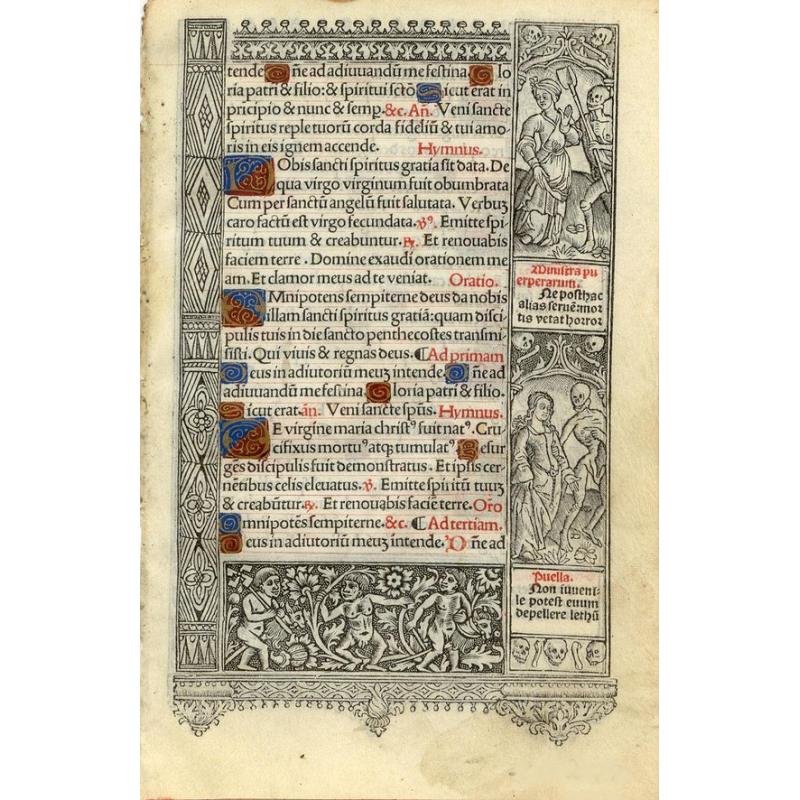 tende. D ñe ad adiuuandũ me festina. G lo
ria patri & filio: & spiritui scto S icut erat in
pricipio & nunc & semp. &c. Añ. Veni sancte
spiritus reple tuorũ corda fideliũ & tui amo-
ris in eis ignem accende. Hymnus.
N Obis sancti spiritus gratia sit data. De
qua virgo virginum fuit obumbrata
Cum per sanctũ angelũ fuit salutata. Verbuʒ
caro factũ est virgo fecundata. ꝟꝰ. Emitte spi-
ritum tuum & creabuntur. ℞. Et renouabis
faciem terre. Domine exaudi orationem me
am. Et clamor meus ad te veniat. Oratio.
O Mnipotens sempiterne deus da nobis
illam sancti spiritus gratiã: quam disci-
pulis tuis in die sancto penthecostes transmi-
sisti. Qui viuis & regnas deus. ¶ Ad primam
D eus in adiutoriũ meuʒ intende. D ñe ad
adiuuandũ me festina. G loria patri & filio.
S icut erat. añ. Veni sancte spũs. Hymnus.
D E virgine maria christꝰ fuit natꝰ. Cru
cifixus mortuꝰ atqʒ tumulatꝰ. R esur
gẽs discipulis fuit demonstratus. Et ipsis cer-
nẽtibus celis eleuatus. ꝟ. Emitte spiritũ tuuʒ
& creabũtur. ℞. Et renouabis faciẽ terre. Oro
O mnipotẽs sempiterne. &c. ¶ Ad tertiam.
D eus in adiutoriũ meuʒ intende. D ñe ad
Ministra pu
erperarum.
Ne posthac
alias serue: mor
tis vetat horror
Puella.
Non iuueni-
le potest euum
depellere lethũ